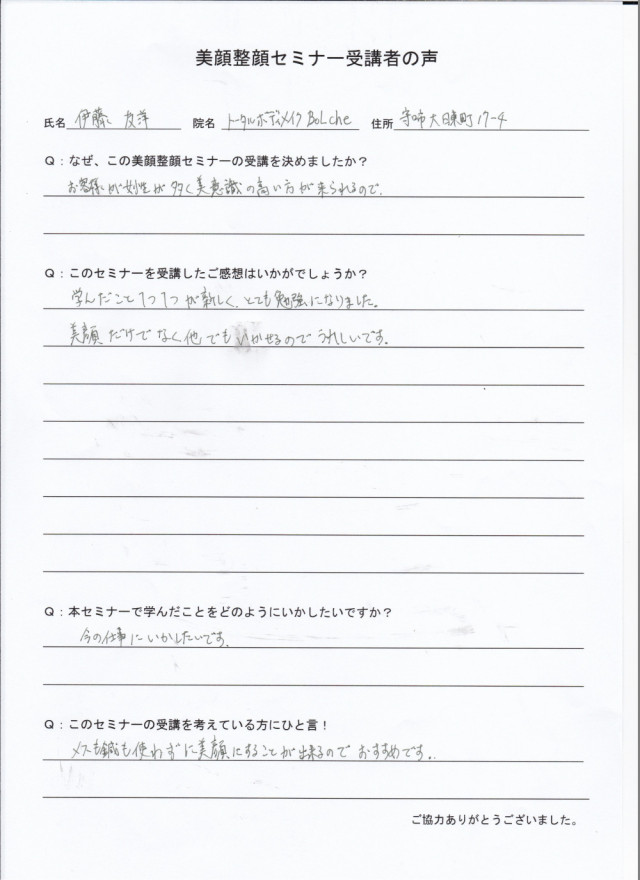 美顔整顔セミナー受講者の声
氏名 伊藤 友洋 院名 トータルボディメイク BoLche 住所 守口市大日東町17-4
Q：なぜ、この美顔整顔セミナーの受講を決めましたか？
お客様が女性が多く美意識の高い方が来られるので。
Q：このセミナーを受講したご感想はいかがでしょうか？
学んだこと1つ1つが新しく、とても勉強になりました。
美顔だけでなく他でもいかせるのでうれしいです。
Q：本セミナーで学んだことをどのようにいかしたいですか？
今の仕事にいかしたいです。
Q：このセミナーの受講を考えている方にひと言！
メスも鍼も使わずに美顔にすることが出来るのでおすすめです。
ご協力ありがとうございました。